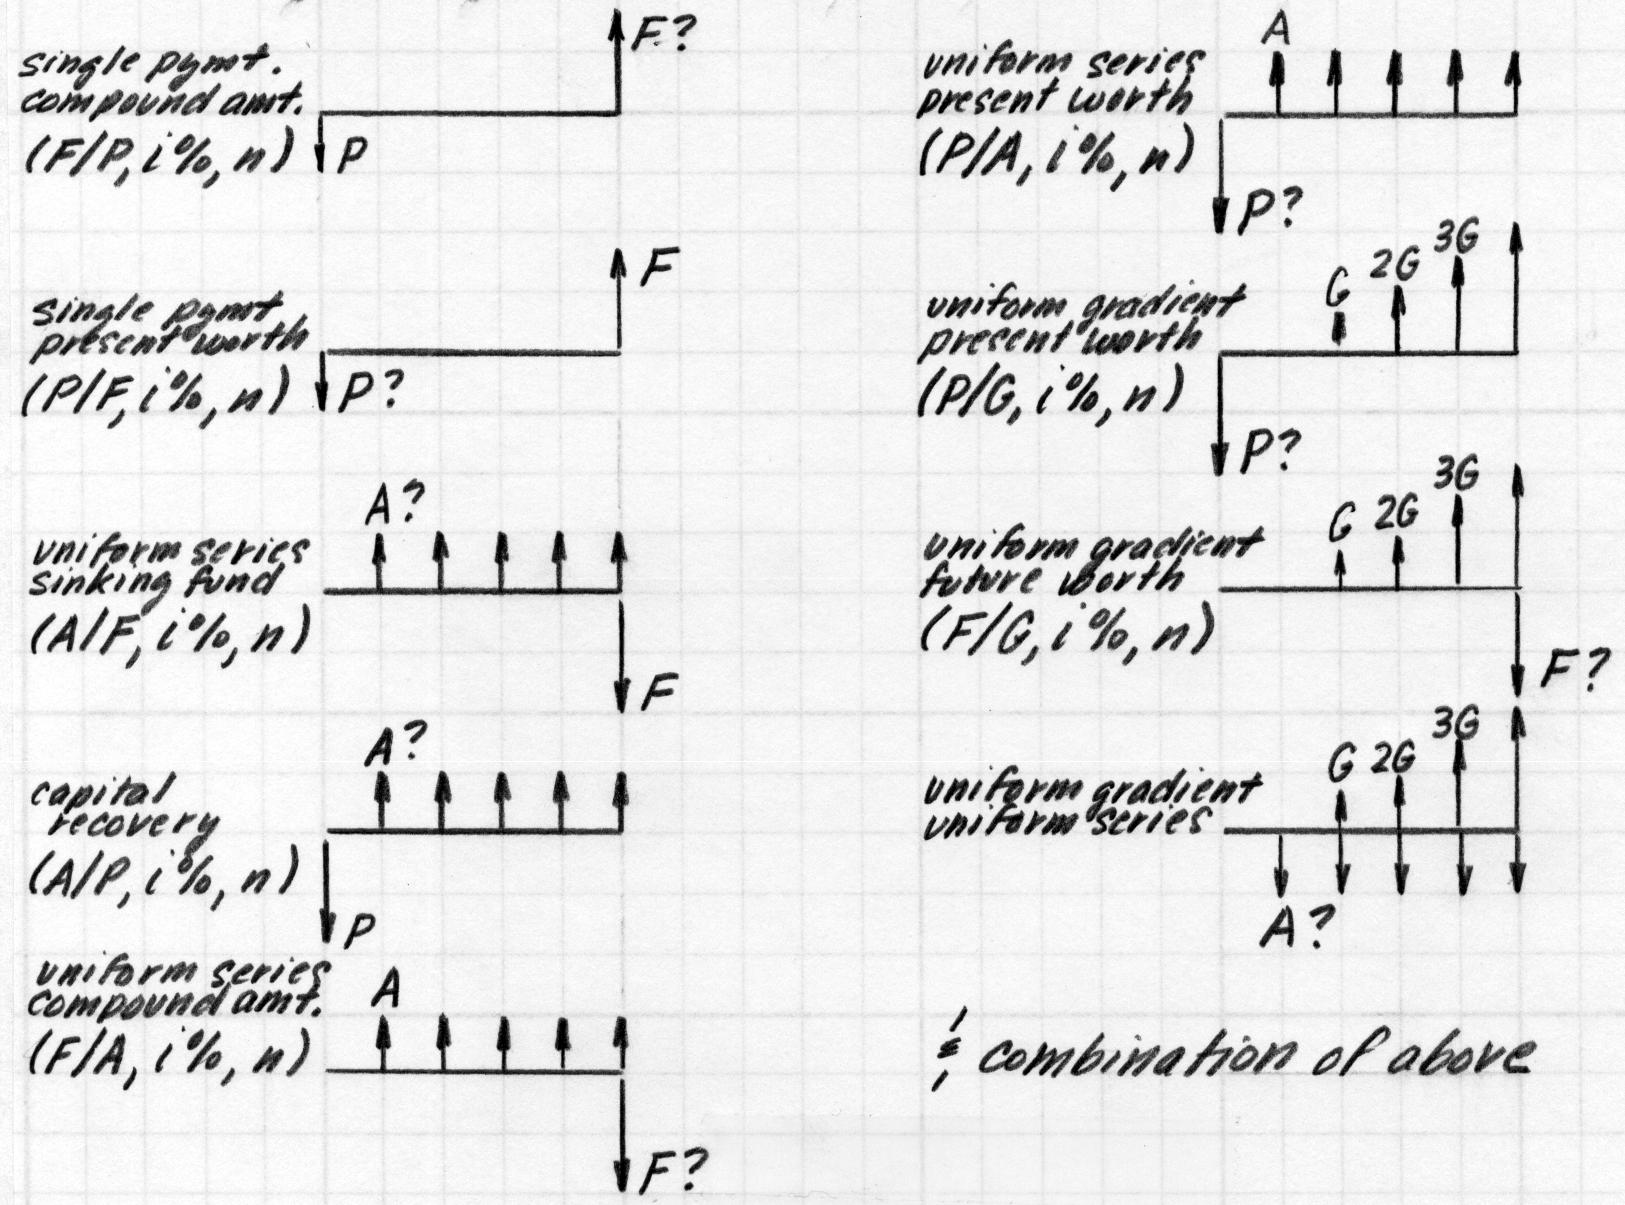 single pymt.
compound amt.
(F/P, i%, n)
P
F?
single pymt
present worth
(P/F, i%, n)
P?
F
A?
uniform series
sinking fund
(A/F, i%, n)
F
A?
capital
recovery
(A/P, i%, n)
P
uniform series
compound amt.
(F/A, i%, n)
A
F?
A
uniform series
present worth
(P/A, i%, n)
P?
G 2G 3G
uniform gradient
present worth
(P/G, i%, n)
P?
G 2G 3G
uniform gradient
future worth
(F/G, i%, n)
F?
G 2G 3G
uniform gradient
uniform series
A?
& combination of above